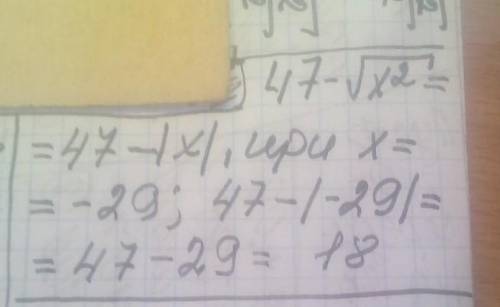 47-√x²=
=47-|x|, при x=
=-29; 47-|-29|=
=47-29= 18